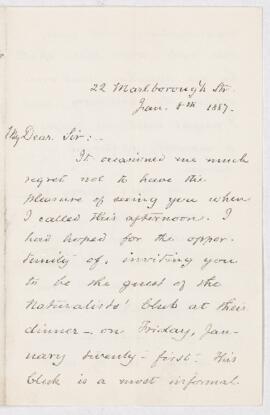 22 Marlborough Str.
Jan. 8th 1887.
My Dear Sir:-
It occasioned me much
regret not to have the
pleasure of seeing you when
I called this afternoon. I
had hoped for the oppor-
tunity of, inviting you
to be the guest of the
Naturalists' Club at their
dinner - on Friday, Jan-
uary twenty-first. This
Club is a most informal